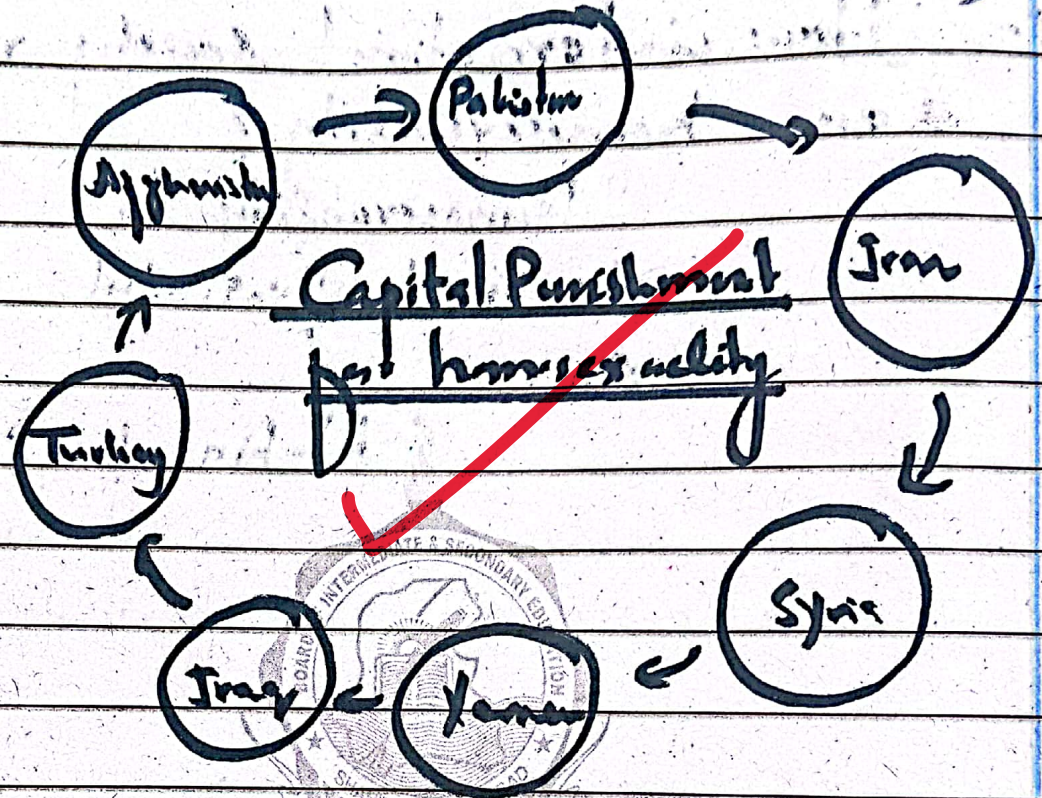 Pakistan
Afghanistn
Iran
Capital Punishment
for homosexuality
Turkey
Syria
Iraq
Yemen
BOARD INTERMEDIATE & SECONDARY EDUCATION